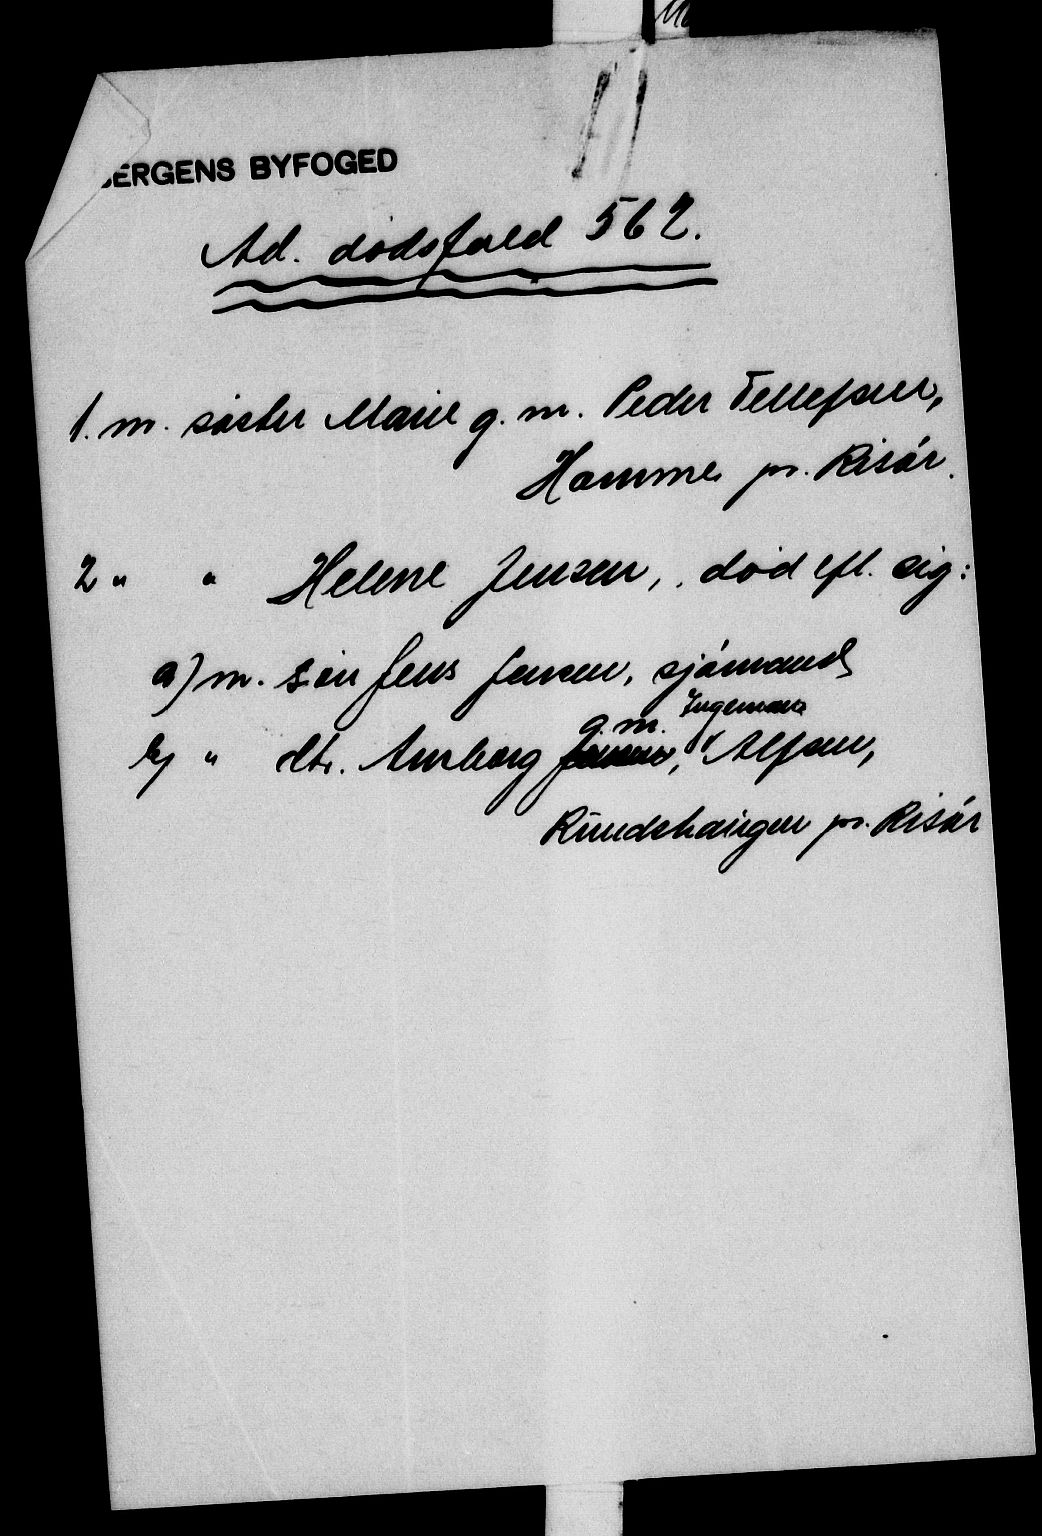 BERGENS BYFOGED
Ad. dødsfald 562.
1. m. søster Marie g. m. Peder Tellefsen,
Hamme pr. Risør.
2 " " Helene Jensen, død eft. sig:
a) m. søn Jens Jensen, sjømand
g. m. Ingeman
b) " dtr. Annborg Jensen, Alfsen,
pr. Risør